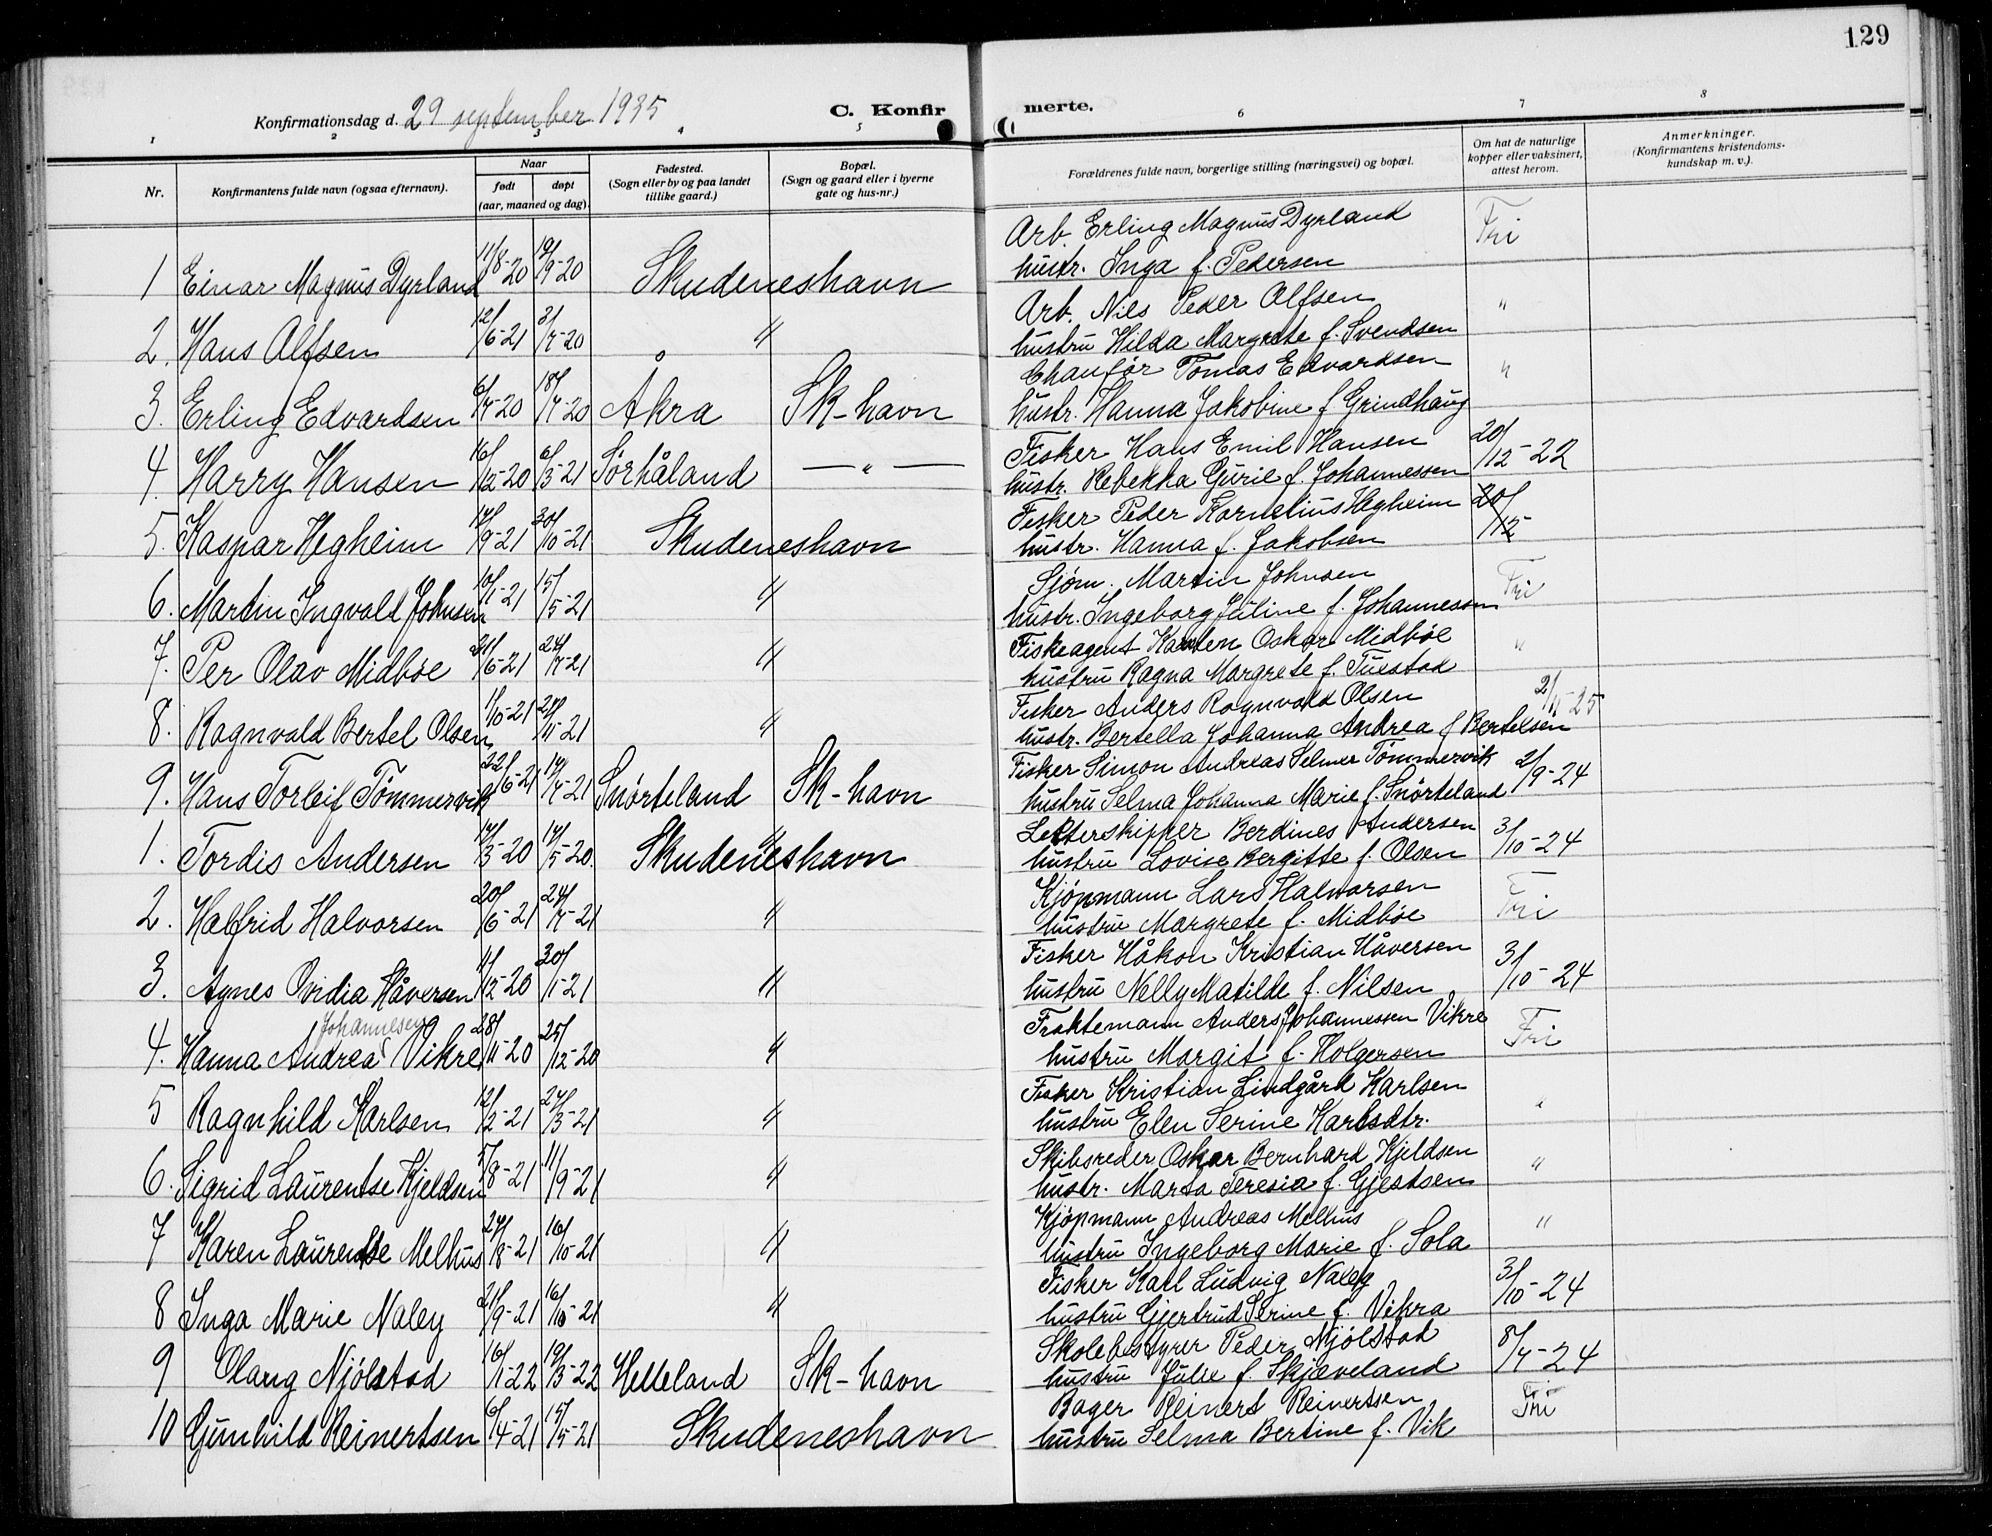 129
Konfirmationsdag d. 29 september 1935
C. Konfirmerte.
1 2 3 4 5 6 7 8
Nr. Konfirmantens fulde navn (ogsaa efternavn). Naar født døpt (aar, maaned og dag). Fødested. (Sogn eller by og paa landet tillike gaard.) Bopæl. (Sogn og gaard eller i byerne gate og hus-nr.) Forældrenes fulde navn, borgerlige stilling (næringsvei) og bopæl. Om hat de naturlige kopper eller vaksinert, attest herom. Anmerkninger. (Konfirmantens kristendomskundskap m. v.).
Arb. Erling Magnus Dyrland Fri
1 Einar Magnus Dyrland 11/8-20 19/9-20 Skudeneshavn hustr. Inga f. Pedersen
Arb. Nils Peder Alfsen "
2. Hans Alfsen 12/6-21 3/7-20 " hustru Hilda Margrete f. Svendsen
Chaufør Tomas Edvardsen "
3. Erling Edvardsen 6/7-20 18/7-20 Åkra Sk-havn hustr. Hanna Jakobine f Grindhaug
Fisker Hans Emil Hansen 20/12-22
4. Harry Hansen 16/12-20 6/3-21 Sørhåland — " — hustr. Rebekka Gurie f. Johannessen
Fisker Peder Kornelius Hegheim 20/12
5. Kaspar Hegheim 17/9-21 30/10-21 Skudeneshavn hustr. Hanna f. Jakobsen
Sjøm. Martin Johnsen Fri
6. Martin Ingvald Johnsen 10/1-21 15/5-21 " hustr. Ingeborg Juline f. Johannessen
Fiskeagent Karsten Oskar Midbøe "
7. Per Olav Midbøe 21/6-21 24/7-21 " hustru Ragna Margrete f. Tuestad
Fisker Anders Ragnvald Olsen 2/11-25
8. Ragnvald Bertel Olsen 1/10-21 24/11-21 " hustr. Bertella Johanna Andrea f Bertelsen
Fisker Simon Andreas Selmer Tømmervik 2/9-24
9. Hans Torleif Tømmervik 22/6-21 17/7-21 Snørteland Sk-havn hustru Selma Johanna Marie f. Snørteland
Letterskipper Berdines Andersen 3/10-24
1. Tordis Andersen 17/3-20 17/5-20. Skudeneshavn hustru Lovise Bergitte f. Olsen
Kjøpmann Lars Halvorsen Fri
2. Halfrid Halvorsen 20/6-21 24/7-21 " hustru Margrete f. Midbøe
Fisker Håkon Kristian Håversen 3/10-24
3. Agnes Ovidia Håversen 11/12-20 30/1-21 " hustru Nelly Matilde f. Nilsen
Johannesen
Fraktemann Anders Johannessen Vikre Fri
4. Hanna Andrea Vikre 28/11-20 25/12-20 " hustru Margit f. Holgersen
Fisker Kristian Lindgård Karlsen "
5 Ragnhild Karlsen 12/2-21 27/3-21 " hustru Elen Serine Karlsdtr.
Skibsreder Oskar Bernhard Kjeldsen "
6. Sigrid Laurentse Kjeldsen 5/8-21 11/9-21 " hustr. Marta Teresia f. Gjestsen
Kjøpmann Andreas Melhus "
7 Karen Laurentse Melhus 27/8-21 16/10-21 " hustru Ingeborg Marie f. Sola
Fisker Karl Ludvig Naley 3/10-24
8 Inga Marie Naley 21/9-21 16/10-21 " hustru Gjertrud Serine f. Vikra
Skolebestyrer Peder Njølstad 8/7-24
9 Olaug Njølstad 16/1-22 19/3-22 Helleland Sk-havn hustru Julie f. Skjæveland
Bager Reinert Reinertsen Fri
10 Gunhild Reinertsen 6/4-21 15/5-21 Skudeneshavn hustru Selma Bertine f. Vik